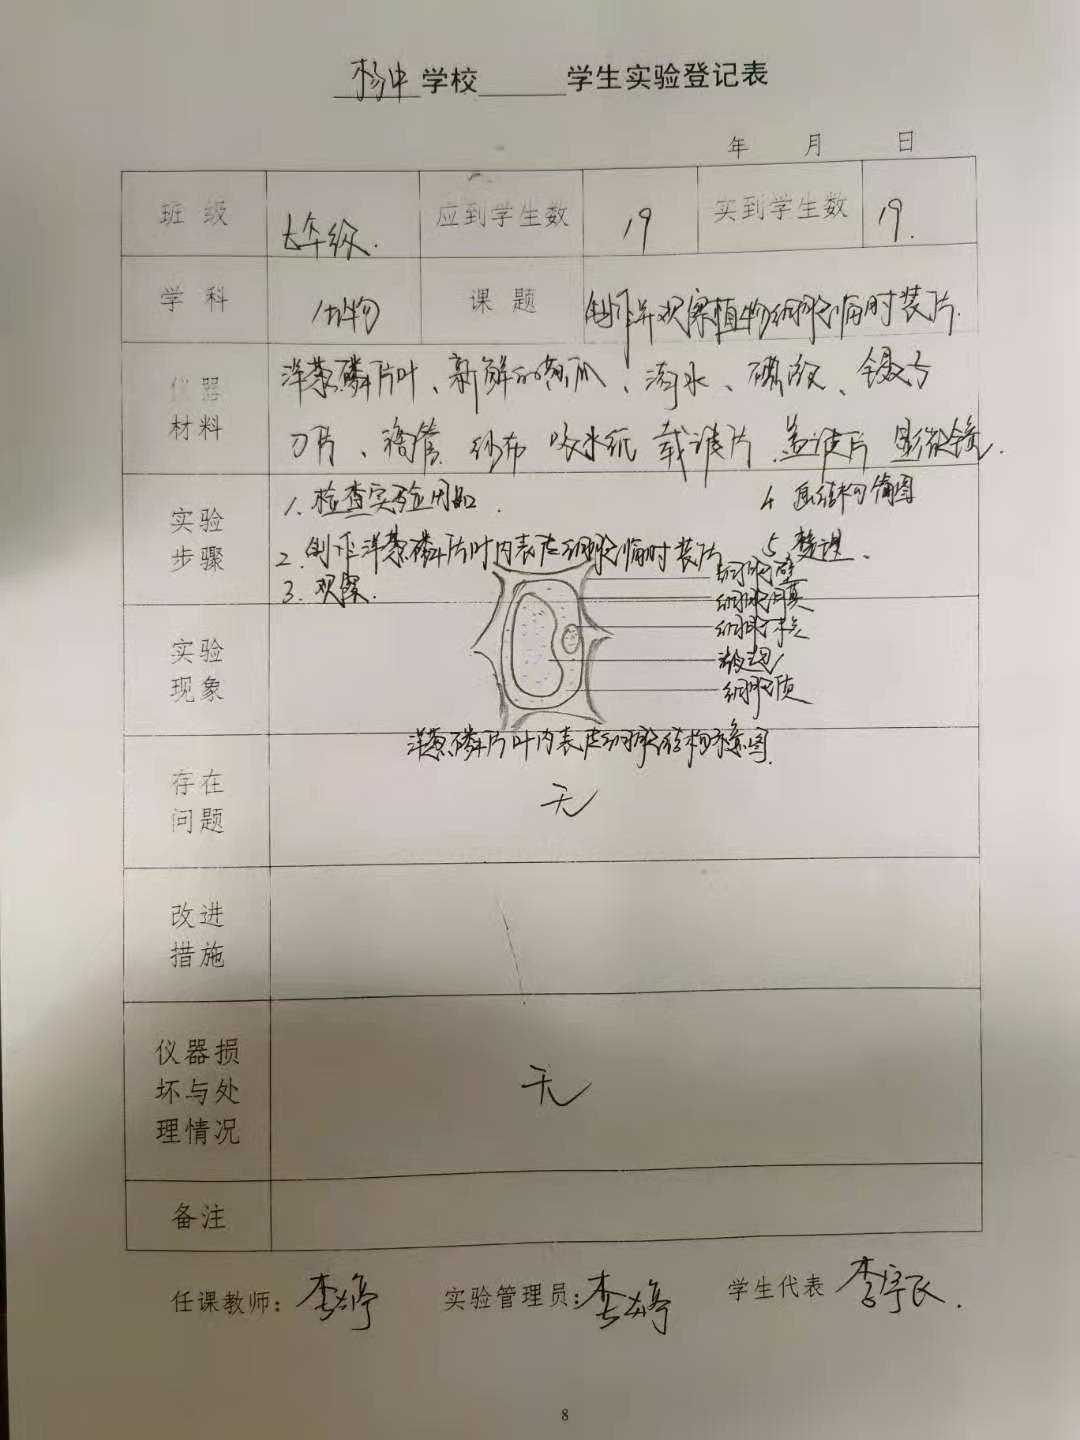 杨中学校______学生实验登记表
年 月 日
班级 七年级. 应到学生数 19 实到学生数 19.
学科 生物 课题 制作并观察植物细胞临时装片.
仪器材料 洋葱磷片叶、新鲜的黄瓜、清水、碘液、镊子
刀片、滴管 纱布 吸水纸 载玻片 盖玻片 显微镜.
实验步骤 1.检查实验用品. 4 画结构简图
2.制作洋葱磷片叶内表皮细胞临时装片 5 整理.
3.观察.
实验现象
细胞壁
细胞膜
细胞核
液泡
细胞质
洋葱磷片叶内表皮细胞结构示意图.
存在问题 无
改进措施
仪器损坏与处理情况 无
备注
任课教师: 李婷 实验管理员: 李婷 学生代表 李宇
8